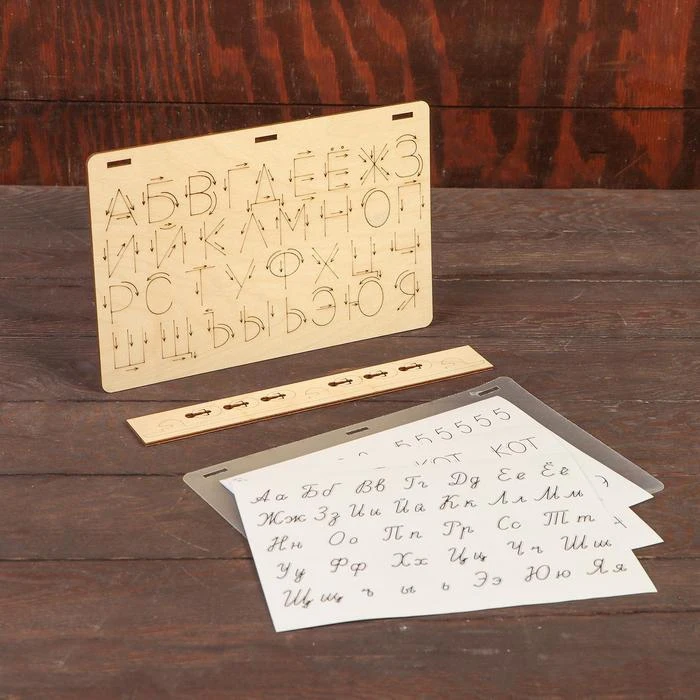 АБВГДЕЁЖЗ
ИЙКЛМНОП
РСТУФХЦЧ
ШЩЪЫЬЭЮЯ
555555
КОТ
КОТ
Аа Бб Вв Гг Дд Ее Ёё
Жж Зз Ии Йй Кк Лл Мм
Нн Оо Пп Рр Сс Тт
Уу Фф Хх Цц Чч Шш
Щщ ъ ы ь Ээ Юю Яя